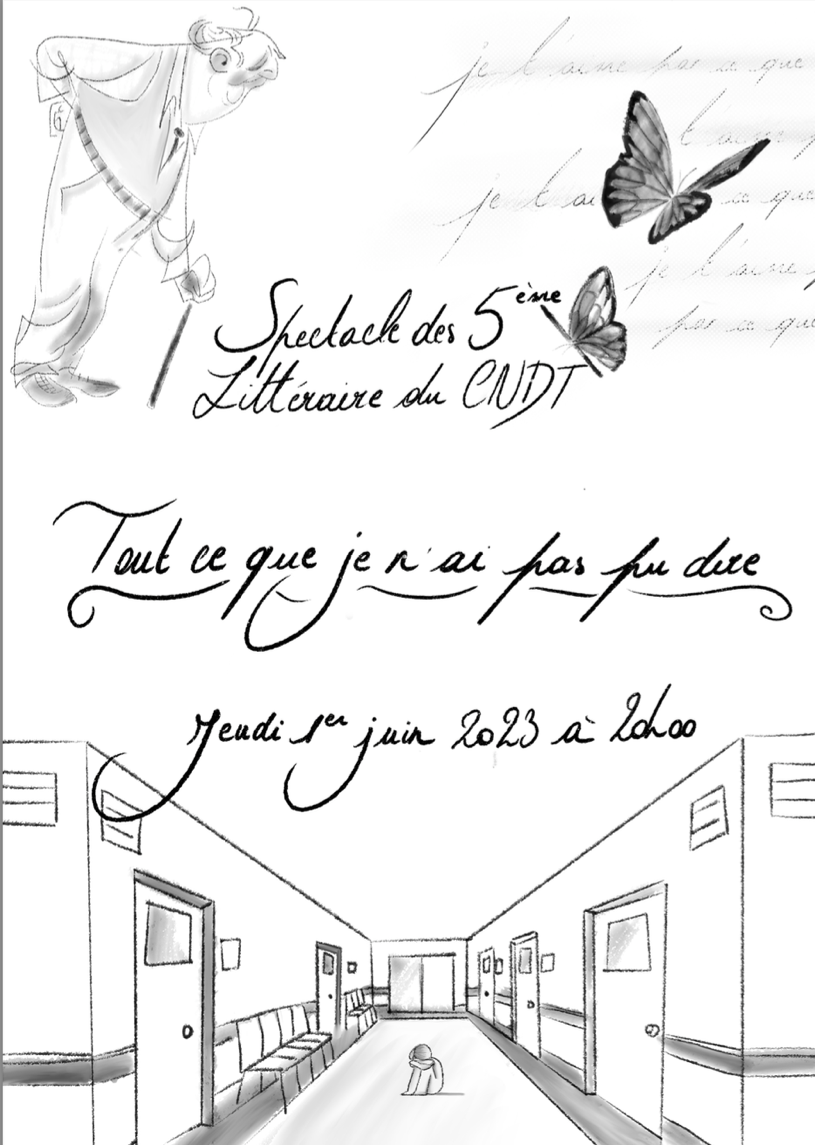 je t'aime par ce que
t'aime
je t'ai ce que
je t'aime
par ce que
Spectacle des 5ème
Littéraire du CNDT
Tout ce que je n'ai pas pu dire
Jeudi 1er juin 2023 à 20h00